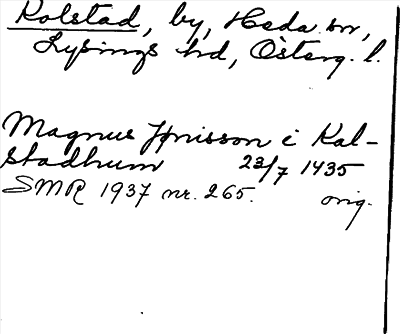 Kolstad, by, Heda sn,
Lysings hd, Österg. l.
Magnus Jönisson i Kal-
stadhum 23/7 1435
SMR 1937 nr. 265. orig.